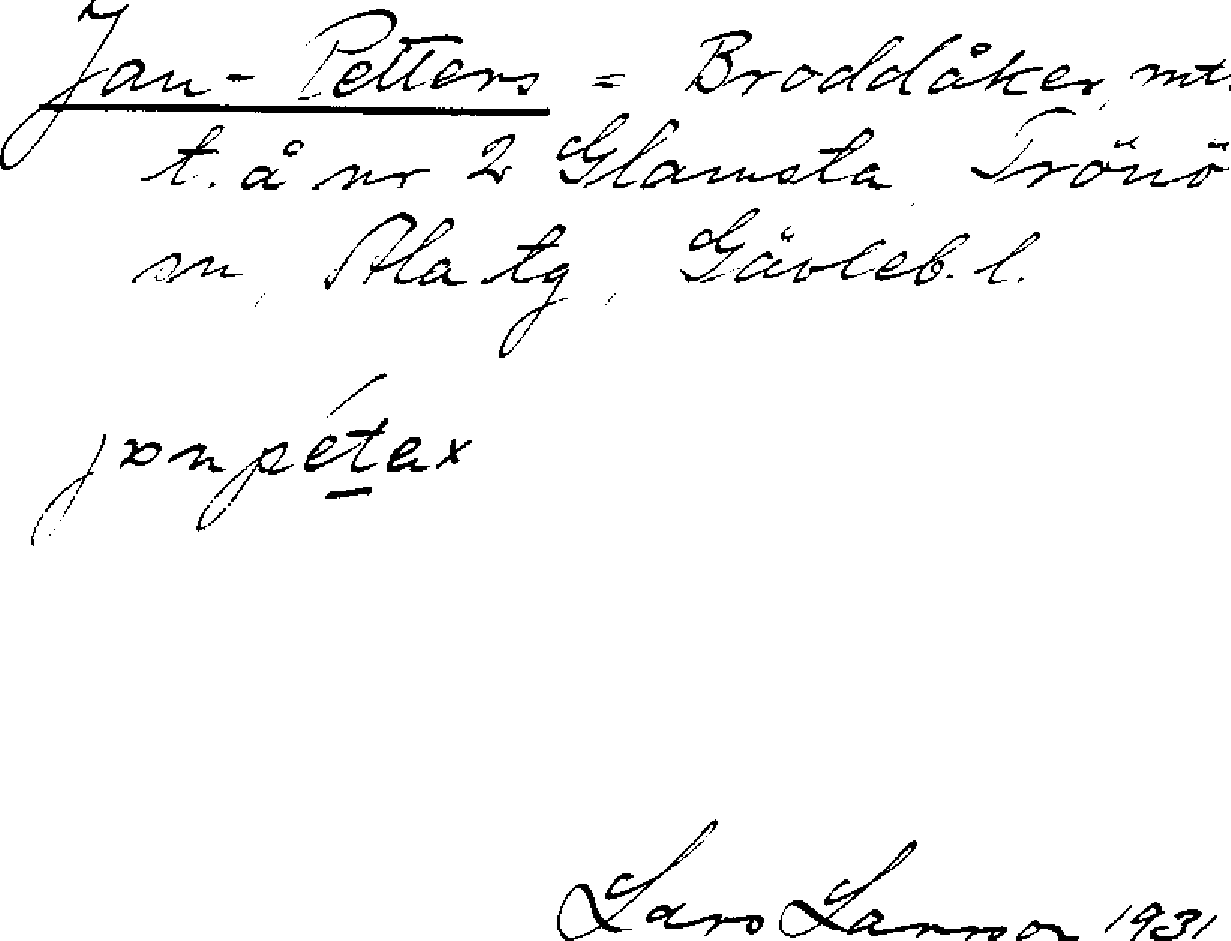 Jan-Petters = Broddåker, mt.
t. å nr 2 Glamsta, Trönö
sn, Ala tg, Gävleb. l.
Lars Larsson 1931